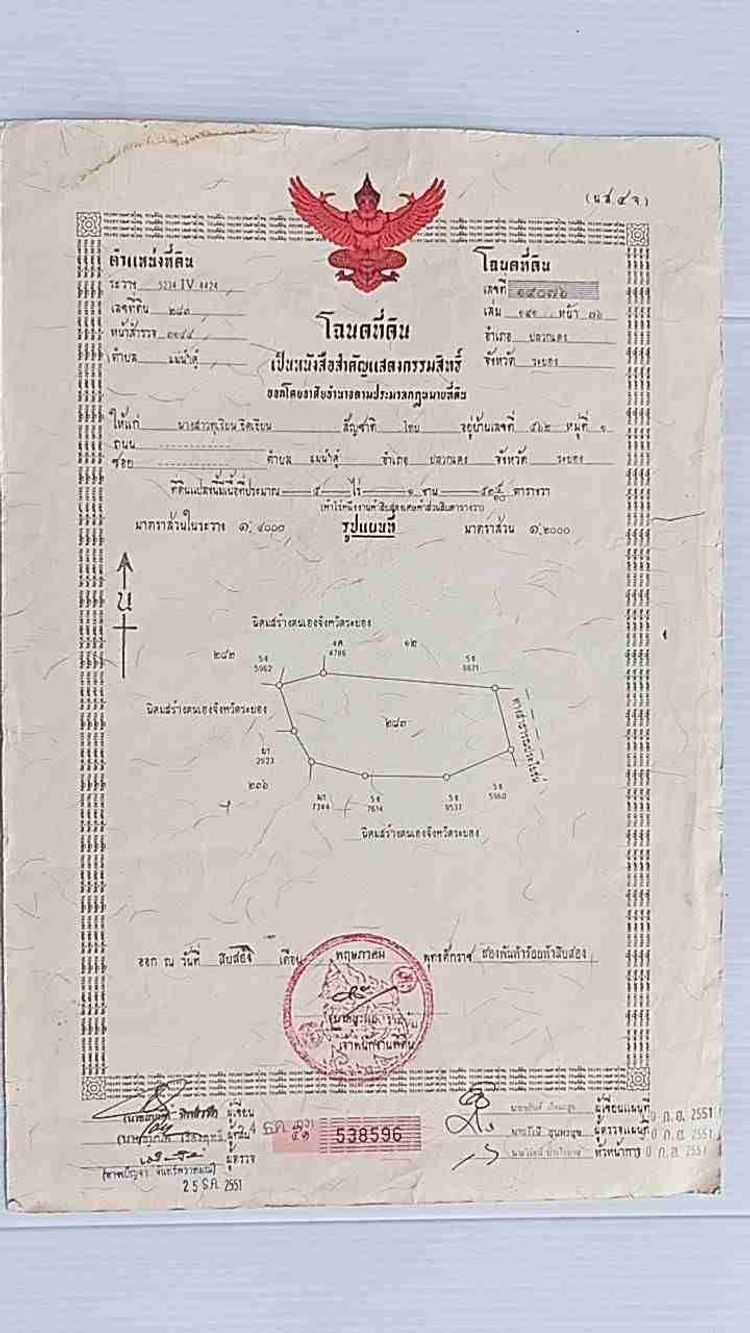 (น.ส. ๔ จ)
ตำแหน่งที่ดิน
ระวาง 5234 IV 4424
เลขที่ดิน ๒๘๓
หน้าสำรวจ ๓๑๔๔
ตำบล แม่น้ำคู้
โฉนดที่ดิน
เลขที่ ๑๔๐๗๖
เล่ม ๑๔๑ หน้า ๗๖
อำเภอ ปลวกแดง
จังหวัด ระยอง
โฉนดที่ดิน
เป็นหนังสือสำคัญแสดงกรรมสิทธิ์
ออกโดยอาศัยอำนาจตามประมวลกฎหมายที่ดิน
ให้แก่ นางสาวทุเรียน สัญชาติ ไทย อยู่บ้านเลขที่ ๕๖๒ หมู่ที่ ๑
ถนน
ซอย ตำบล แม่น้ำคู้ อำเภอ ปลวกแดง จังหวัด ระยอง
ที่ดินแปลงนี้มีเนื้อที่ประมาณ ๕ ไร่ ๑ งาน ตารางวา
มาตราส่วนในระวาง ๑: ๔๐๐๐
รูปแผนที่
มาตราส่วน ๑:๒๐๐๐
น
นิคมสร้างตนเองจังหวัดระยอง
๒๘๒
๑๒
5962
4786
นิคมสร้างตนเองจังหวัดระยอง
๒๘๓
ทางสาธารณประโยชน์
2923
๒๐๖
7344
7614
9537
5960
นิคมสร้างตนเองจังหวัดระยอง
ออก ณ วันที่ สิบสอง เดือน พฤษภาคม พุทธศักราช สองพันห้าร้อยห้าสิบสอง
เจ้าพนักงานที่ดิน
ผู้เขียน
ผู้ตรวจ
25 ธ.ค. 2551
538596
ผู้เขียนแผนที่
ผู้ตรวจแผนที่
หัวหน้าการ